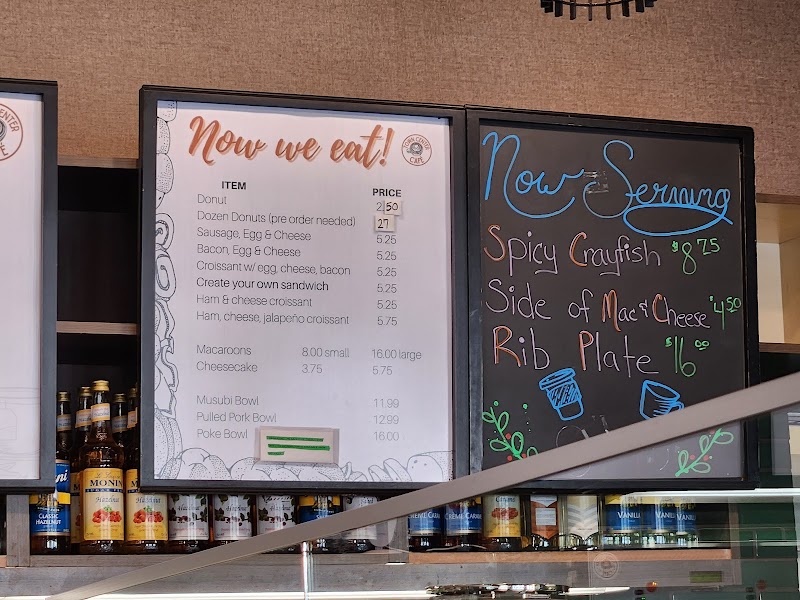 CENTER
Now we eat!
TOWN CENTER
CAFE
ITEM PRICE
Donut 2.50
Dozen Donuts (pre order needed) 27
Sausage, Egg & Cheese 5.25
Bacon, Egg & Cheese 5.25
Croissant w/ egg, cheese, bacon 5.25
Create your own sandwich 5.25
Ham & cheese croissant 5.25
Ham, cheese, jalapeño croissant 5.75
Macaroons 8.00 small 16.00 large
Cheesecake 3.75 5.75
Musubi Bowl 11.99
Pulled Pork Bowl 12.99
Poke Bowl 16.00
Now Serving
Spicy Crayfish $8.75
Side of Mac & Cheese $4.50
Rib Plate $16.00
MONIN
CLASSIC
HAZELNUT
VANILLA